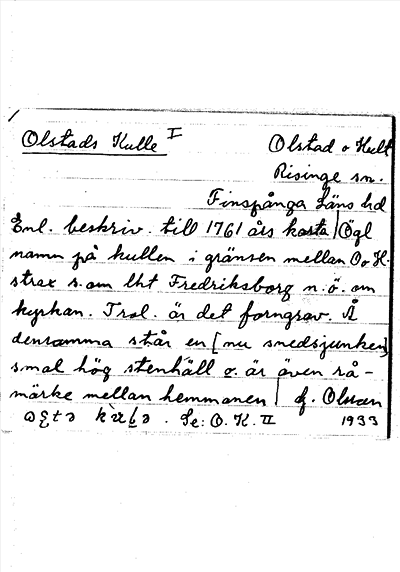 Olstads Kulle I Olstad o Hult
Risinge sn.
Finspånga Läns hd
Enl. beskriv. till 1761 års karta Ögl
namn på kullen i gränsen mellan O o H.
strax s. om lht Fredriksborg n.ö. om
kyrkan. Trol. är det forngrav. Å
densamma står en [nu snedsjunken]
smal hög stenhäll o. är även rå-
märke mellan hemmanen
Se: O. K. II 1933